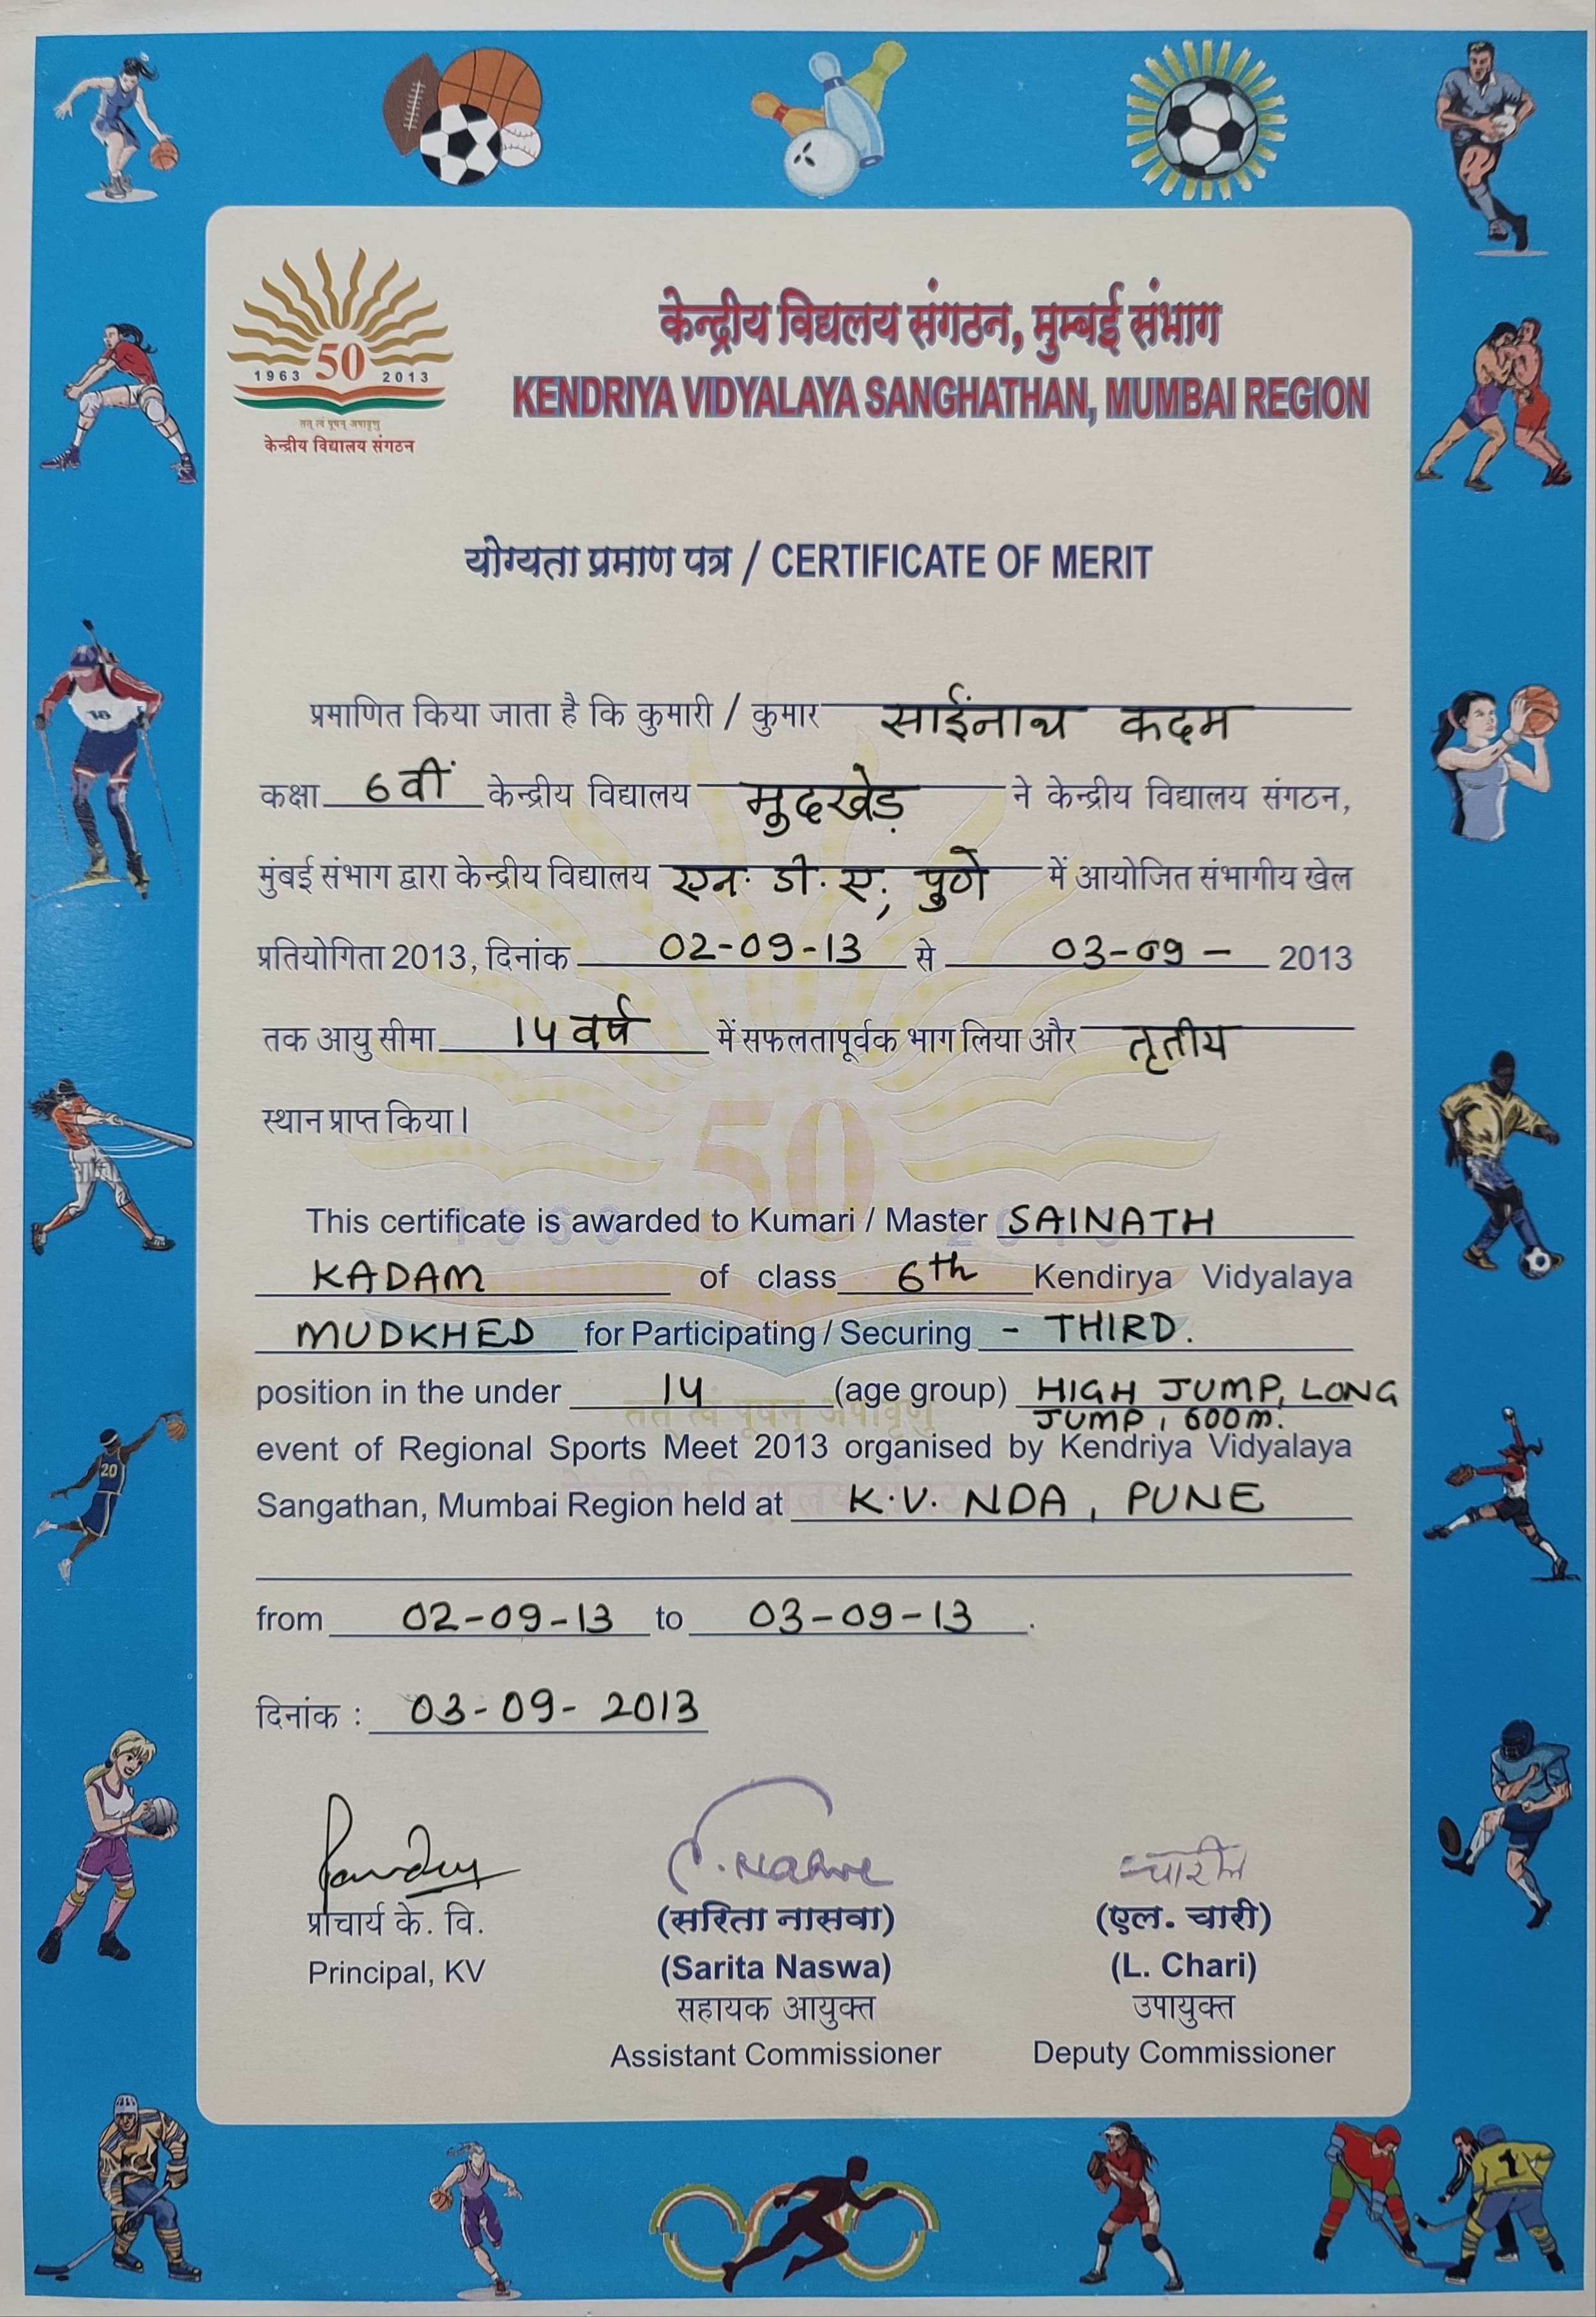 केन्द्रीय विद्यलय संगठन, मुम्बई संभाग
KENDRIYA VIDYALAYA SANGHATHAN, MUMBAI REGION
1963 50 2013
तत् त्वं पूषन् अपावृणु
केन्द्रीय विद्यालय संगठन
योग्यता प्रमाण पत्र / CERTIFICATE OF MERIT
प्रमाणित किया जाता है कि कुमारी / कुमार साईंनाथ कदम
कक्षा 6वीं केन्द्रीय विद्यालय मुदखेड़ ने केन्द्रीय विद्यालय संगठन,
मुंबई संभाग द्वारा केन्द्रीय विद्यालय एन. डी. ए; पुणे में आयोजित संभागीय खेल
प्रतियोगिता 2013, दिनांक 02-09-13 से 03-09- 2013
तक आयु सीमा 14 वर्ष में सफलतापूर्वक भाग लिया और तृतीय
स्थान प्राप्त किया।
This certificate is awarded to Kumari / Master SAINATH
KADAM of class 6th Kendirya Vidyalaya
MUDKHED for Participating / Securing - THIRD.
position in the under 14 (age group) HIGH JUMP, LONG
JUMP, 600m.
event of Regional Sports Meet 2013 organised by Kendriya Vidyalaya
Sangathan, Mumbai Region held at K.V. NDA, PUNE
from 02-09-13 to 03-09-13.
दिनांक : 03-09-2013
चारी
प्राचार्य के. वि. (सरिता नासवा) (एल. चारी)
Principal, KV (Sarita Naswa) (L. Chari)
सहायक आयुक्त उपायुक्त
Assistant Commissioner Deputy Commissioner